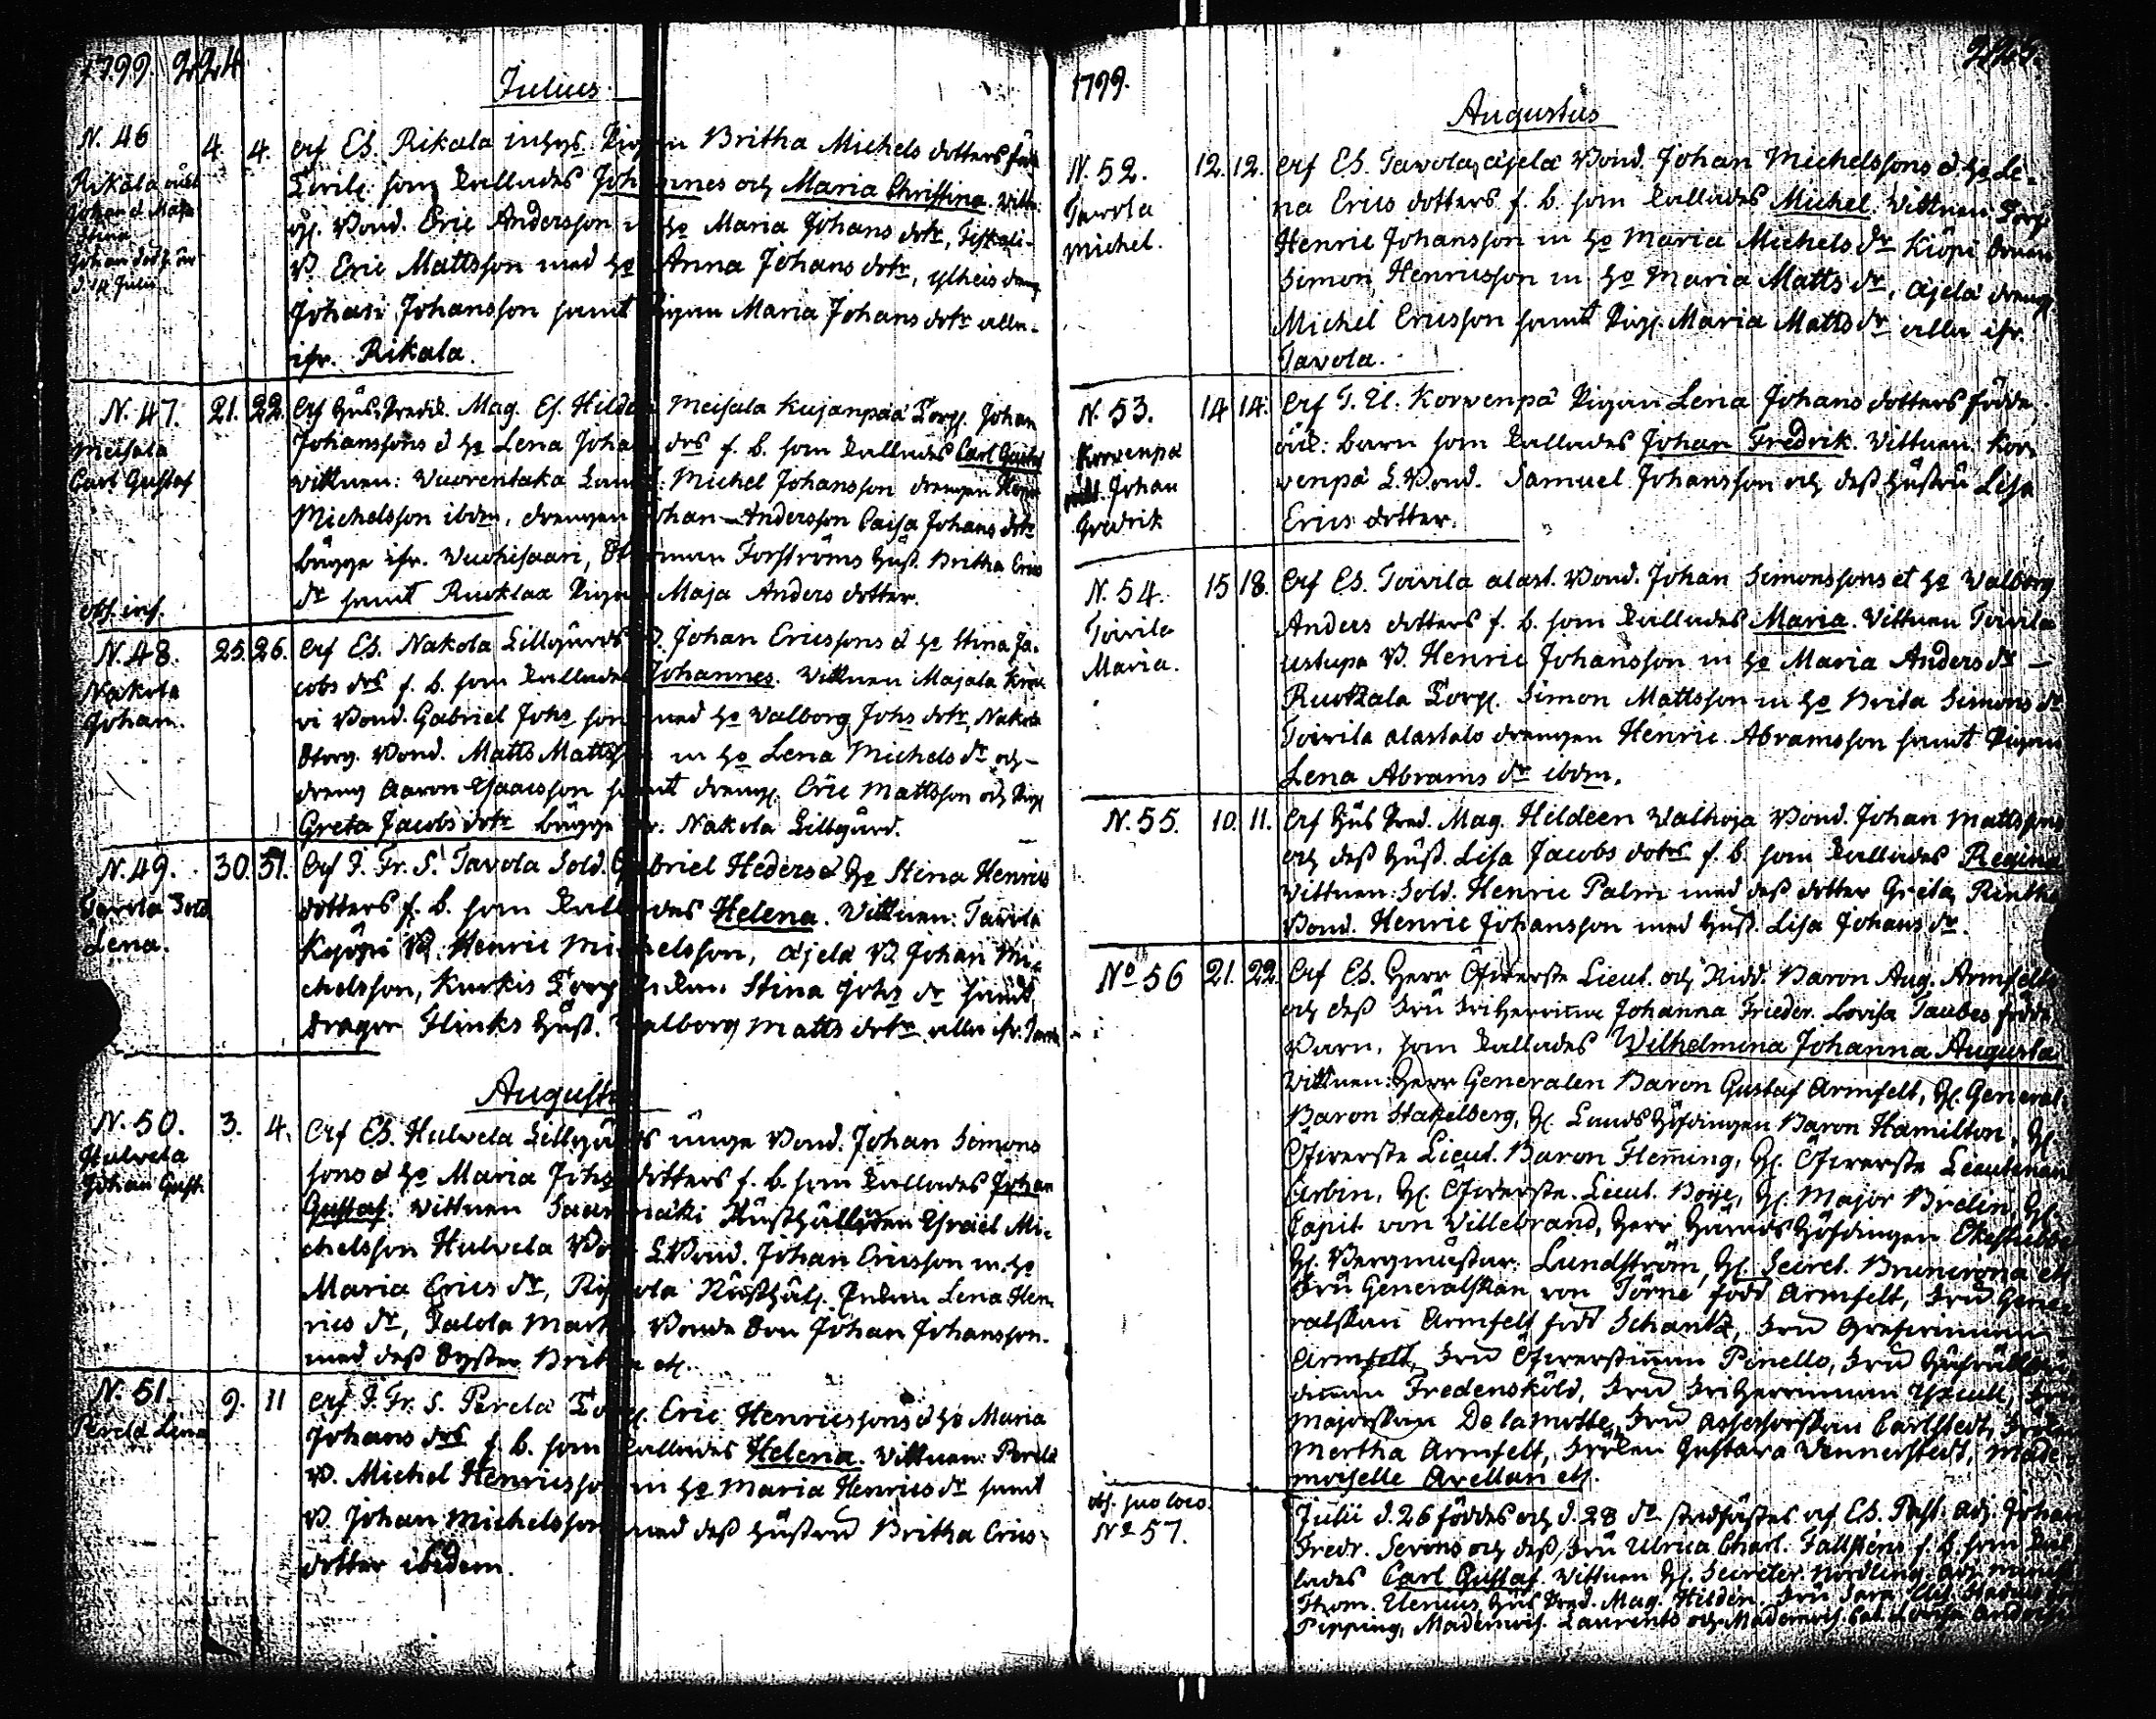 1799. 224
Julius
N. 46
Rikala
4. 4. Af Es. Rikala inhys. Pigan Britha Michels dotters
som kallades Johannes och Maria Christina. Vittn:
Bond. Eric Andersson Maria Johans dotr,
B. Eric Mattsson med Ho Anna Johans dotr,
Johan Johansson samt Pigan Maria Johans dotr alla
ifr. Rikala.
N. 47.
Meisala
Carl Gustaf
21. 22. Af Hus Predik. Mag. Es. Hildén Meisala Kujanpää Torp. Johan
Johanssons & Ho Lena Johans drs f. b. som kallades Carl Gustaf
vittnen: Vuorentaka Michel Johansson drengen
Michelsson ibdm, drengen Johan Andersson Caisa Johans dotr
bägge ifr. Vuohisaari, Forströms Hust. Britha Erics
dr samt Ruoklax Pigan Maja Anders dotter.
N. 48.
Nakola
Johan.
25. 26. Af Es. Nakola Lillgårds B. Johan Ericssons & Ho Stina Ja-
cobs drs f. b. som kallades Johannes. Vittnen Majala
vi Bond. Gabriel Johs son med Ho Valborg Johs dotr, Nakola
Storg. Bond. Matts Mattsson m Ho Lena Michels dr och
dreng Aaron Isaacsson samt dreng. Eric Mattsson och Pig.
Greta Jacobs dotr bägge ifr. Nakola Lillgård.
N. 49.
Tavola Sold
Lena.
30. 31. Af F. Fr. S. Tavola Sold. Gabriel Heders & Ho Stina Henrics
dotters f. b. som kallades Helena. Vittnen: Tavola
Kiöpi B. Henric Michelsson, Äjelä B. Johan Mi-
chelsson, Kurkis Torp Enkan Stina Johs dr samt
Dragon Flinks Hust. Valborg Matts dotr alla ifr.
August
N. 50.
Hulvela
Johan Gust.
3. 4. Af Es. Hulvela Lillgårds unge Bond. Johan Simons
sons & Ho Maria Johs dotters f. b. som kallades Johan
Gustaf. Vittnen Rusthållaren Israel Mi-
chelsson Hulvela Bond. Johan Ericsson m. Ho
Maria Erics dr, Rusthåls Enkan Lena Hen
rics dr, Bonde Son Johan Johansson
med dess Syster Britha etc.
N. 51.
Perelä Lena
9. 11 Af F. Fr. S. Perelä Torp. Eric Henricssons & Ho Maria
Johans drs f. b. som kallades Helena. Vittnen: Perelä
B. Michel Henricsson m Ho Maria Henrics dr samt
B. Johan Michelsson med dess Hustru Britha Erics
dotter ibidem.
1799.
Augustus
N. 52.
Tavola
Michel.
12. 12. Af Es. Tavola, Äjelä Bond. Johan Michelssons & Ho Le-
na Erics dotters f. b. som kallades Michel. Vittnen Torp
Henric Johansson m Ho Maria Michels dr Kiöpi
Simon Henricsson m Ho Maria Matts dr, Äjelä dreng
Michel Ericsson samt Pig. Maria Matts dr alla ifr.
Tavola.
N. 53.
Korvenpä
Johan
Fredrik
14 14. Af Korvenpä Pigan Lena Johans dotters födde
barn som kallades Johan Fredrik. Vittnen Kor-
venpä Bond. Samuel Johansson och dess Hustru Lisa
Erics dotter.
N. 54.
Toivila
Maria.
15 18. Af Es. Toivila alast. Bond. Johan Simonssons et Ho Valborg
Anders dotters f. b. som kallades Maria. Vittnen Toivila
B. Henric Johansson m Ho Maria Anders dr
Ruokala Torp. Simon Mattsson m Ho Brita Simons dr
Toivila alastalo drengen Henric Abramsson samt Pigan
Lena Abrams dr ibdm.
N. 55. 10. 11. Af Hus Pred. Mag. Heldeen Walhoja Bond. Johan Mattssons
och dess Hust. Lisa Jacobs dotrs f. b. som kallades Regina
Vittnen: Sold. Henric Palm med dess dotter Greta,
Bond. Henric Johansson med Hust. Lisa Johans dr.
No 56 21. 22. Af Es. Herr Öfwerste Lieut. och Ridd. Baron Aug. Armfelts
och dess Fru Friherrinna Johanna Frieder. Lovisa Taubes födde
Barn, som kallades Wilhelmina Johanna Augusta
Vittnen: Herr Generalen Baron Gustaf Armfelt, H. General
Baron Stakelberg, H. Landshöfdingen Baron Hamilton, H.
Öfwerste Lieut. Baron Fleming, H. Öfwerste Lieutenant
Carbin, H. Öfwerste Lieut. Boije, H. Major Brelin, H.
Capit von Willebrand, Herr Häradshöfdingen Ekestubbe
H. Bergmästar. Lundström, H. Secret. Brunérona etc
Fru Generalskan von Törne född Armfelt, Fru Gene
ralskan Armfelt född Schantz, Fru Grefwinnan
Armfelt, Fru Öfwerstinnan Pinello, Fru
Fredensköld, Fru Friherrinnan Yxcull,
Majorskan De la Motte, Fru Assessorskan Carlstedt, Fröken
Mertha Armfelt, Fröken Gustava Wennerstedt, Made
moiselle Avellan etc.
obs. suo loco.
No 57.
Julii d. 26 föddes och d. 28 do af Es. Past. adj. Johan
Fredr. Serens och dess Fru Ulrica Charl. Fallsténs f. b. som kal
lades Carl Gustaf. Vittnen H. Secreter. Nordling,
Thom. Elenius, Hus Pred. Mag. Hildén. Fru Sara
Pipping, Mademois. Laurents och Mademois.